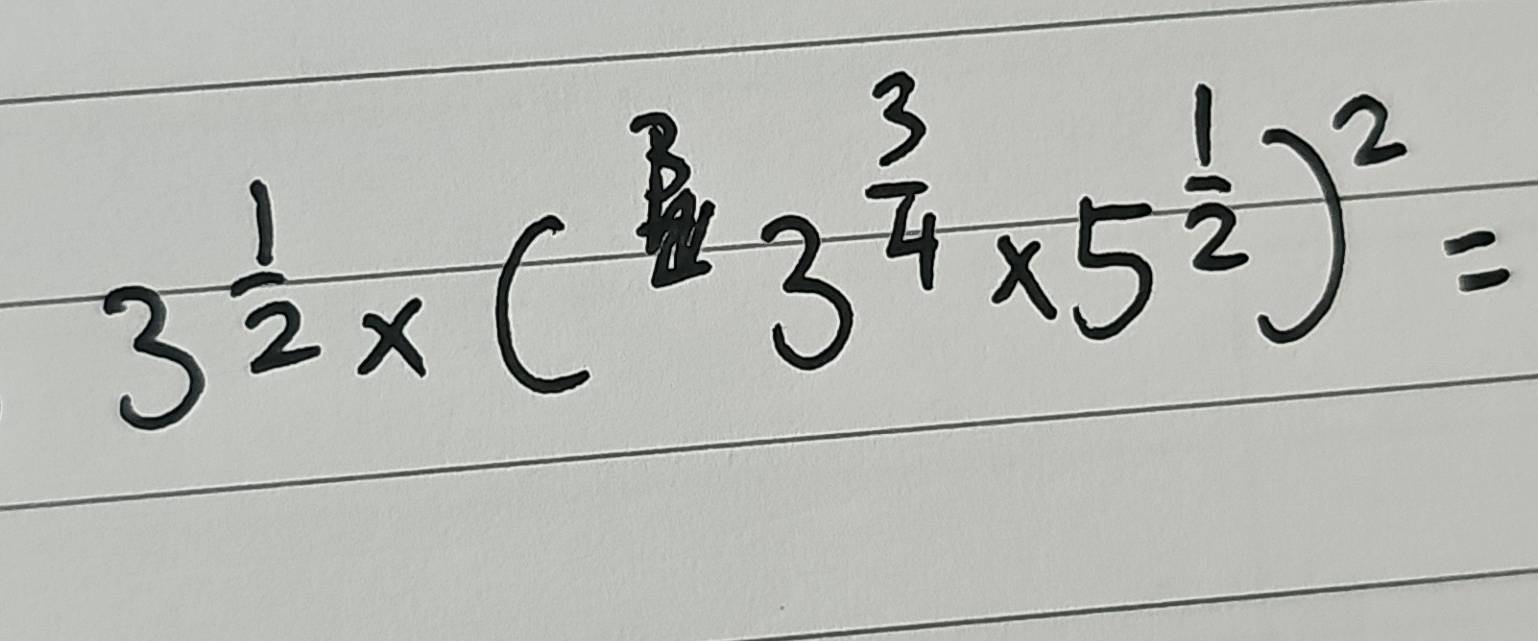 3^{\frac{1}{2}} × ( 3^{\frac{3}{4}} × 5^{\frac{1}{2}} )^2 =